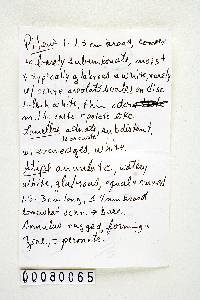 Pileus 1-1.5 cm broad, convex
to barely subumbonate, moist
& typically glabrous & white, rarely
w/ ochre areolate on disc
flesh white, thin, odor
mild, taste
Lamellae adnate, subdistant,
w/ even edges, white.
Stipe annulate, watery
white, glabrous, equal & curved
1.5-3 cm long, 1 mm broad
somewhat ochr. → base.
Annulus ragged, forming a
zone, peronate.
00080065